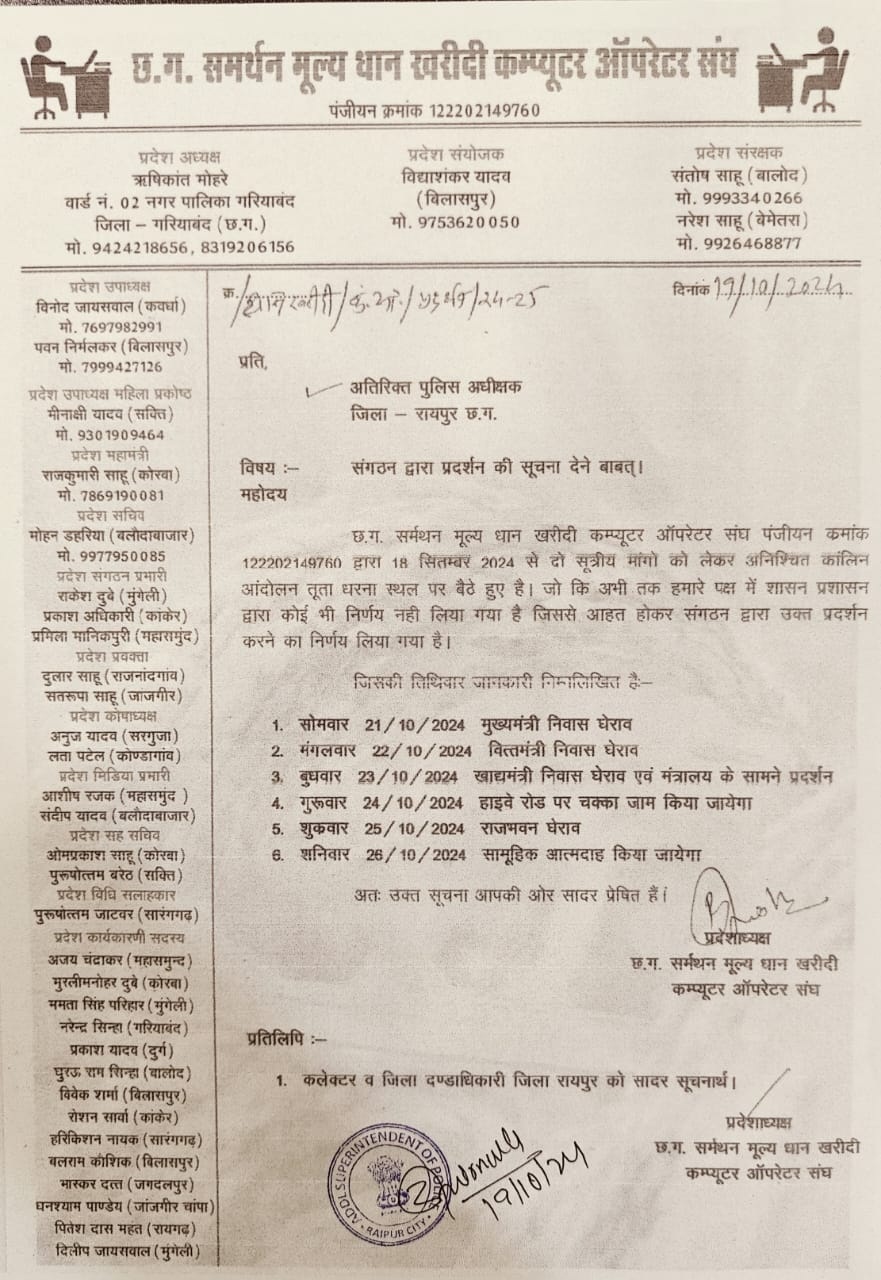 छ.ग. समर्थन मूल्य धान खरीदी कम्प्यूटर ऑपरेटर संघ
पंजीयन क्रमांक 122202149760
प्रदेश अध्यक्ष
ऋषिकांत मोहरे
वार्ड नं. 02 नगर पालिका गरियाबंद
जिला – गरियाबंद (छ.ग.)
मो. 9424218656, 8319206156
प्रदेश संयोजक
विद्याशंकर यादव
(बिलासपुर)
मो. 9753620050
प्रदेश संरक्षक
संतोष साहू (बालोद)
मो. 9993340266
नरेश साहू (बेमेतरा)
मो. 9926468877
प्रदेश उपाध्यक्ष
विनोद जायसवाल (कवर्धा)
मो. 7697982991
पवन निर्मलकर (बिलासपुर)
मो. 7999427126
प्रदेश उपाध्यक्ष महिला प्रकोष्ठ
मीनाक्षी यादव (सक्ति)
मो. 9301909464
प्रदेश महामंत्री
राजकुमारी साहू (कोरबा)
मो. 7869190081
प्रदेश सचिव
मोहन डहरिया (बलौदाबाजार)
मो. 9977950085
प्रदेश संगठन प्रभारी
राकेश दुबे (मुंगेली)
प्रकाश अधिकारी (कांकेर)
प्रमिला मानिकपुरी (महासमुंद)
प्रदेश प्रवक्ता
दुलार साहू (राजनांदगांव)
सतरूपा साहू (जांजगीर)
प्रदेश कोषाध्यक्ष
अनुज यादव (सरगुजा)
लता पटेल (कोण्डागांव)
प्रदेश मिडिया प्रभारी
आशीष रजक (महासमुंद )
संदीप यादव (बलौदाबाजार)
प्रदेश सह सचिव
ओमप्रकाश साहू (कोरबा)
पुरूषोत्तम बरेठ (सक्ति)
प्रदेश विधि सलाहकार
पुरूषोत्तम जाटवर (सारंगगढ़)
प्रदेश कार्यकारणी सदस्य
अजय चंद्राकर (महासमुन्द)
मुरलीमनोहर दुबे (कोरबा)
ममता सिंह परिहार (मुंगेली)
नरेन्द्र सिन्हा (गरियाबंद)
प्रकाश यादव (दुर्ग)
घुरऊ राम सिन्हा (बालोद)
विवेक शर्मा (बिलासपुर)
रोशन सार्वा (कांकेर)
हरिकिशन नायक (सारंगगढ़)
बलराम कौशिक (बिलासपुर)
भास्कर दत्त (जगदलपुर)
घनश्याम पाण्डेय (जांजगीर चांपा)
पितेश दास महंत (रायगढ़)
दिलीप जायसवाल (मुंगेली)
क्र. /24-25
दिनांक 19/10/2024
प्रति,
अतिरिक्त पुलिस अधीक्षक
जिला – रायपुर छ.ग.
विषय :– संगठन द्वारा प्रदर्शन की सूचना देने बाबत्।
महोदय
छ.ग. सर्मथन मूल्य धान खरीदी कम्प्यूटर ऑपरेटर संघ पंजीयन क्रमांक
122202149760 द्वारा 18 सितम्बर 2024 से दो सूत्रीय मांगो को लेकर अनिश्चित कालिन
आंदोलन तूता धरना स्थल पर बैठे हुए है। जो कि अभी तक हमारे पक्ष में शासन प्रशासन
द्वारा कोई भी निर्णय नही लिया गया है जिससे आहत होकर संगठन द्वारा उक्त प्रदर्शन
करने का निर्णय लिया गया है।
जिसकी तिथिवार जानकारी निम्नलिखित हैः–
1. सोमवार 21/10/2024 मुख्यमंत्री निवास घेराव
2. मंगलवार 22/10/2024 वित्तमंत्री निवास घेराव
3. बुधवार 23/10/2024 खाद्यमंत्री निवास घेराव एवं मंत्रालय के सामने प्रदर्शन
4. गुरूवार 24/10/2024 हाइवे रोड पर चक्का जाम किया जायेगा
5. शुकवार 25/10/2024 राजभवन घेराव
6. शनिवार 26/10/2024 सामूहिक आत्मदाह किया जायेगा
अतः उक्त सूचना आपकी ओर सादर प्रेषित हैं।
प्रदेशाध्यक्ष
छ.ग. सर्मथन मूल्य धान खरीदी
कम्प्यूटर ऑपरेटर संघ
प्रतिलिपि :–
1. कलेक्टर व जिला दण्डाधिकारी जिला रायपुर को सादर सूचनार्थ।
प्रदेशाध्यक्ष
छ.ग. सर्मथन मूल्य धान खरीदी
कम्प्यूटर ऑपरेटर संघ
ADDL SUPERINTENDENT OF POLICE
RAIPUR CITY
19/10/24